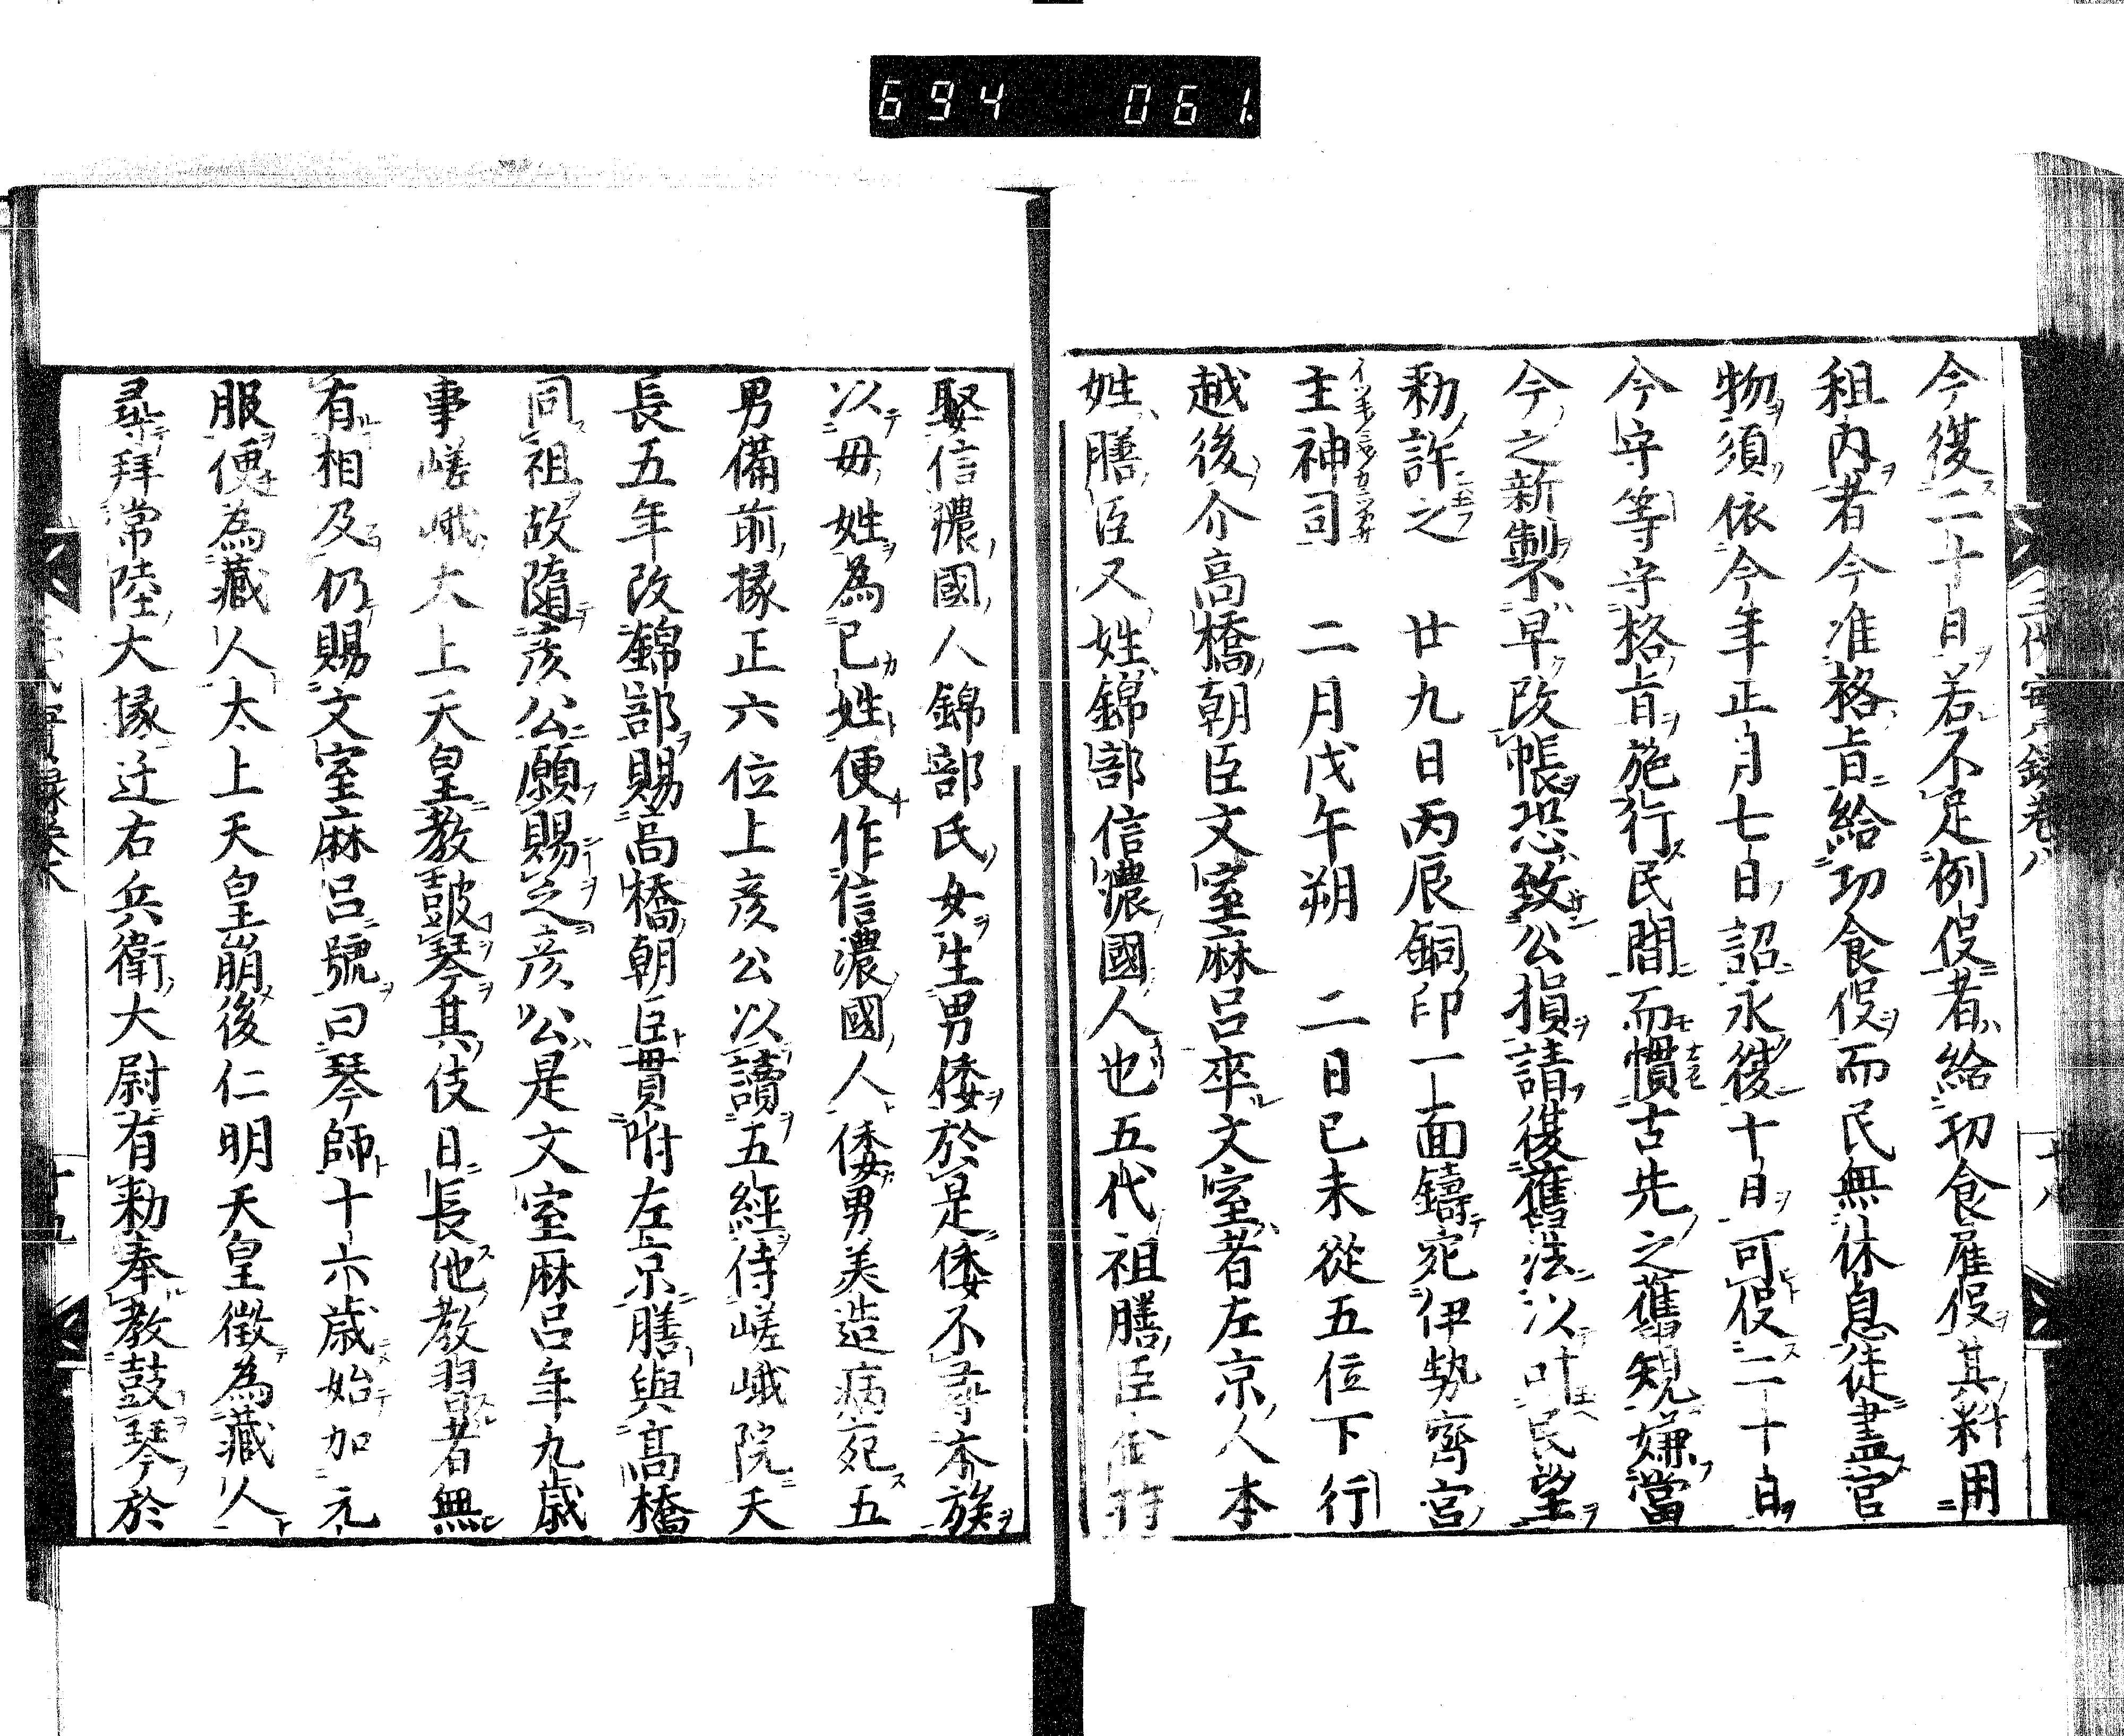 694 061
今復二十日若不足例役者給功食雇役其料用
租内者今准格旨給功食役而民無休息徒盡官
物須依今年正月七日詔永復十日可役二十日
今守等守格旨施行民間而慣古先之舊規嫌當
今之新製不早改帳恐致公損請復舊法以叶民望
勅許之 廿九日丙辰銅印一面鑄宛伊勢齊宮
主神司 二月戊午朔 二日己未從五位下行
越後介高橋朝臣文室麻呂卒文室者左京人本
姓膳臣又姓錦部信濃國人也五代祖膳臣
娶信濃國人錦部氏女生男倭於是倭不尋本族
以母姓為己姓便作信濃國人倭男美造病死五
男備前掾正六位上彦公以讀五經侍嵯峨院天
長五年改錦部賜高橋朝臣貫附左京膳與高橋
同祖故隨彦公願賜之彦公是文室麻呂年九歳
事嵯峨太上天皇教皷琴其伎日長他教習者無
有相及仍賜文室麻呂號曰琴師十六歳始加元
服便為藏人太上天皇崩後仁明天皇徴為藏人
尋拜常陸大掾迁右兵衛大尉有勅奉教鼓琴於